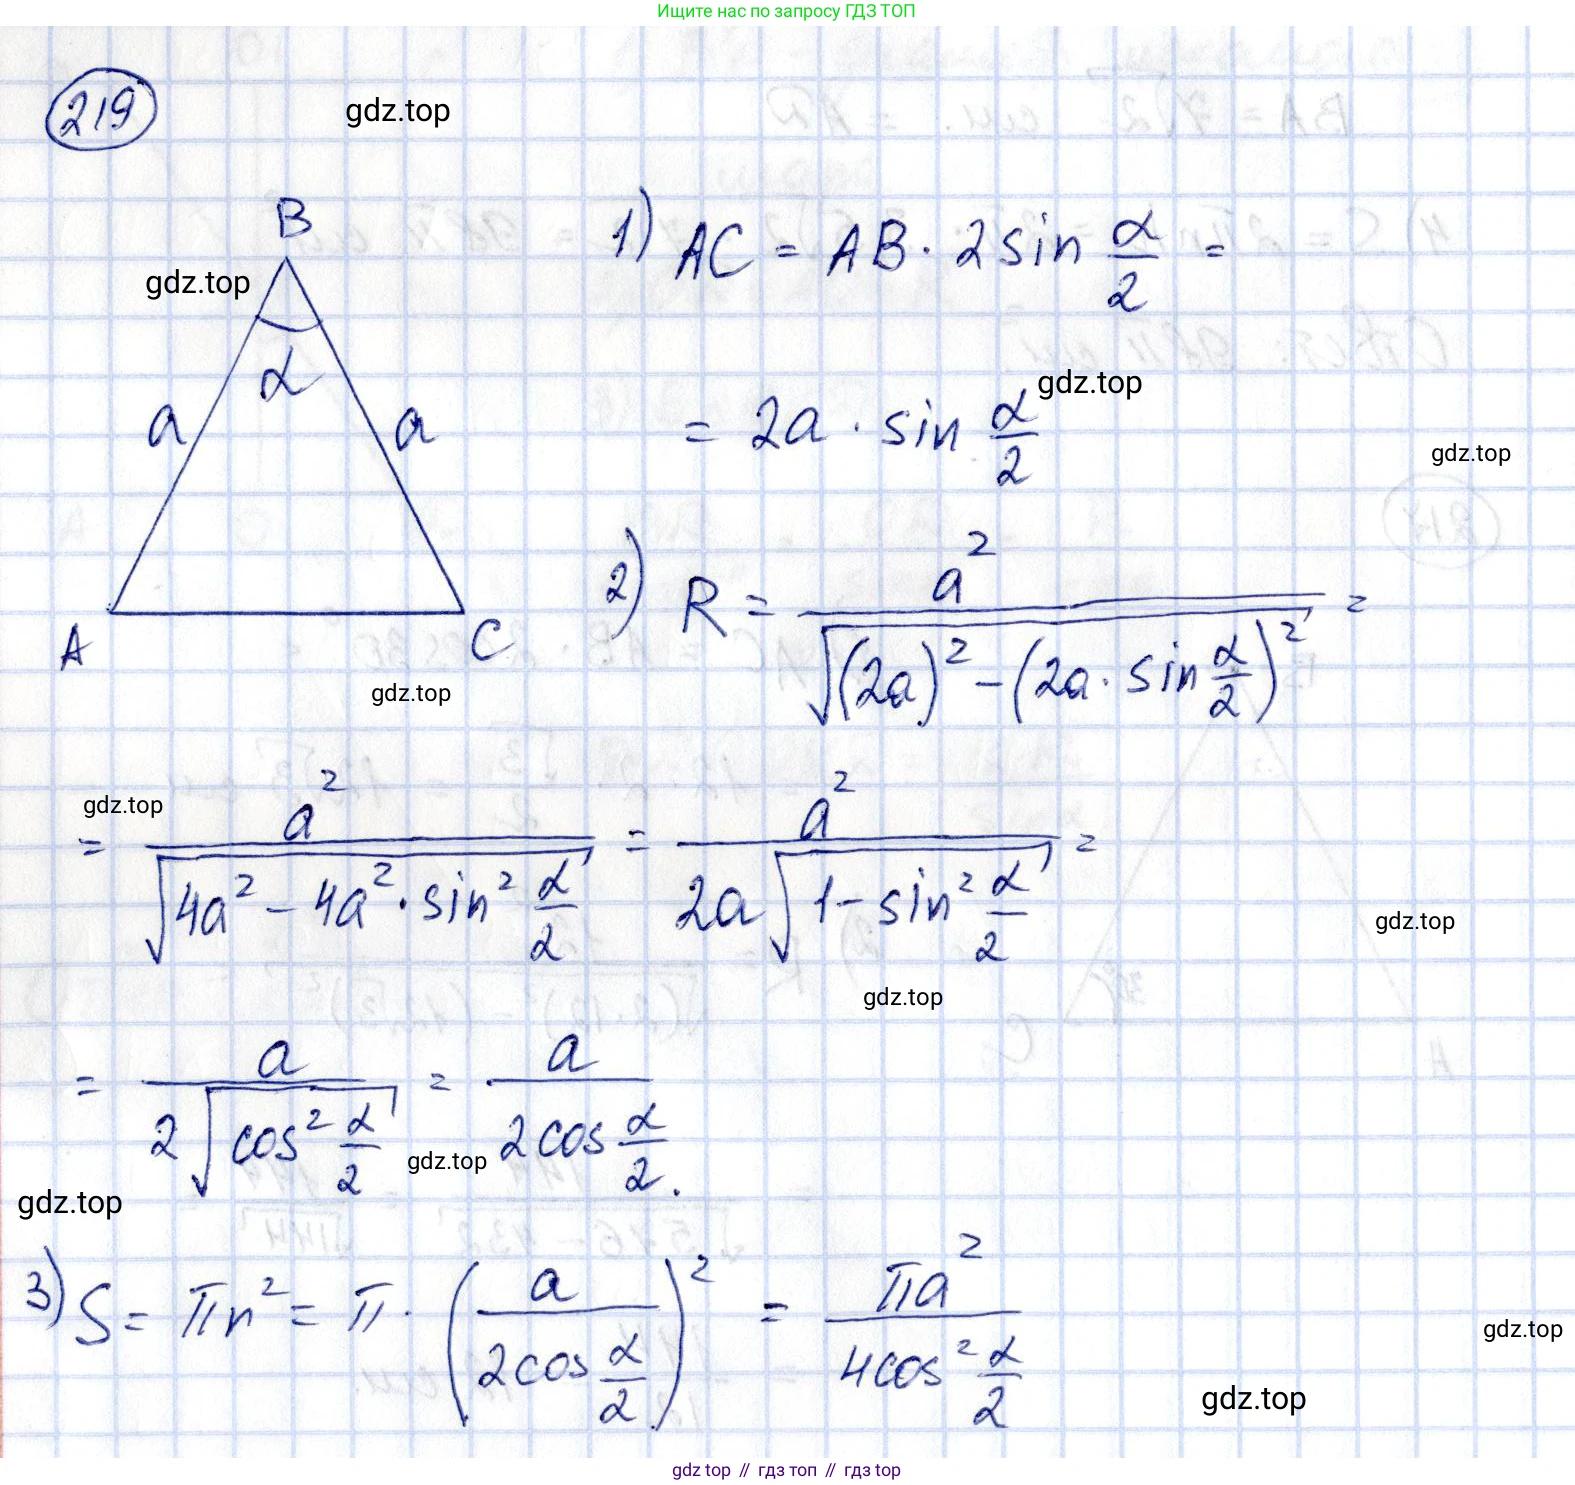 Ищите нас по запросу ГДЗ ТОП
219
gdz.top
B
gdz.top
α
a a
A C
gdz.top
1) AC = AB · 2 sin α/2 =
gdz.top
= 2a · sin α/2
gdz.top
2) R = a² / √((2a)² − (2a · sin α/2)²) =
gdz.top
= a² / √(4a² − 4a² · sin² α/2) = a² / (2a√(1 − sin² α/2)) =
gdz.top
gdz.top
= a / (2√(cos² α/2)) = a / (2cos α/2).
gdz.top
gdz.top
3) S = πr² = π · (a / (2cos α/2))² = πa² / (4cos² α/2)
gdz.top
gdz.top
gdz top // гдз топ // гдз top